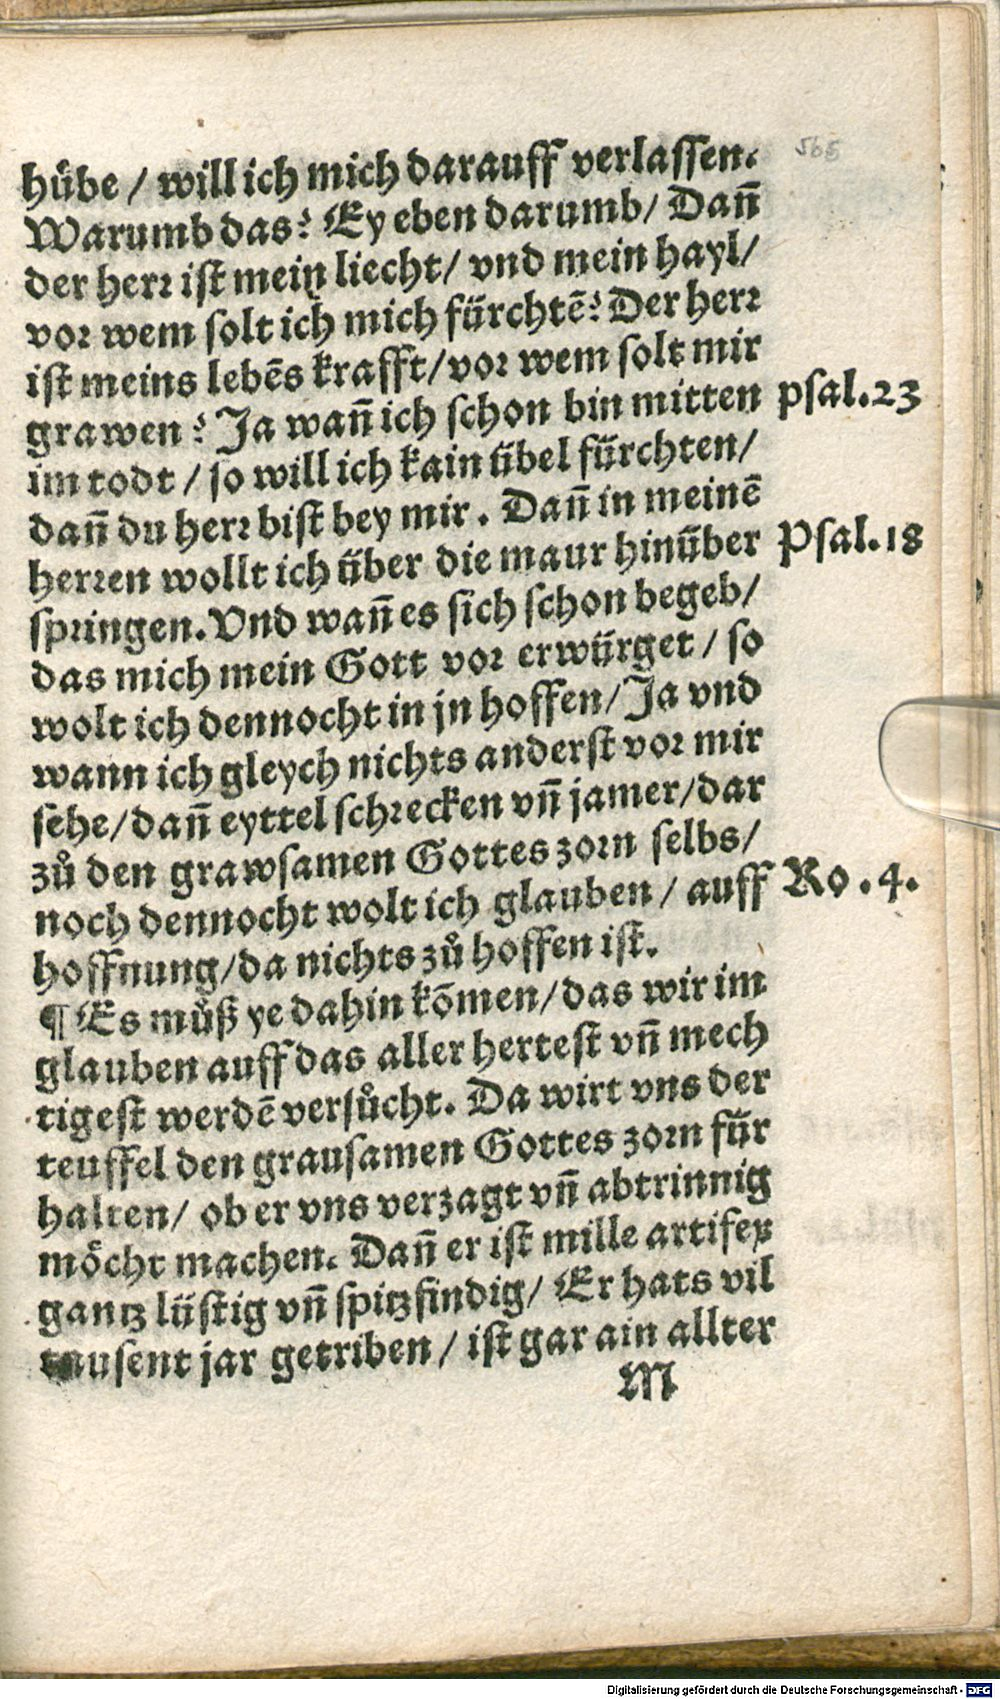 565
hůbe / will ich mich darauff verlassen.
Warumb das? Ey eben darumb / Dañ
der herr ist mein liecht / vnd mein hayl /
vor wem solt ich mich fürchtẽ? Der herr
ist meins lebẽs krafft / vor wem solt mir
grawen? Ja wañ ich schon bin mitten psal.23
im todt / so will ich kain übel fürchten /
dañ du herr bist bey mir. Dañ in meinẽ
herren wollt ich über die maur hinüber Psal.18
springen. Vnd wañ es sich schon begeb /
das mich mein Gott vor erwürget / so
wolt ich dennocht in jn hoffen / Ja vnd
wann ich gleych nichts anderst vor mir
sehe / dañ eyttel schrecken vñ jamer / dar
zů den grawsamen Gottes zorn selbs /
noch dennocht wolt ich glauben / auff Ro.4.
hoffnung / da nichts zů hoffen ist.
¶ Es můß ye dahin kõmen / das wir im
glauben auff das aller hertest vñ mech
tigest werdẽ versůcht. Da wirt vns der
teuffel den grausamen Gottes zorn für
halten / ob er vns verzagt vñ abtrinnig
möcht machen. Dañ er ist mille artifex
gantz lüstig vñ spitzfindig / Er hats vil
tausent jar getriben / ist gar ain allter
M
Digitalisierung gefördert durch die Deutsche Forschungsgemeinschaft - DFG